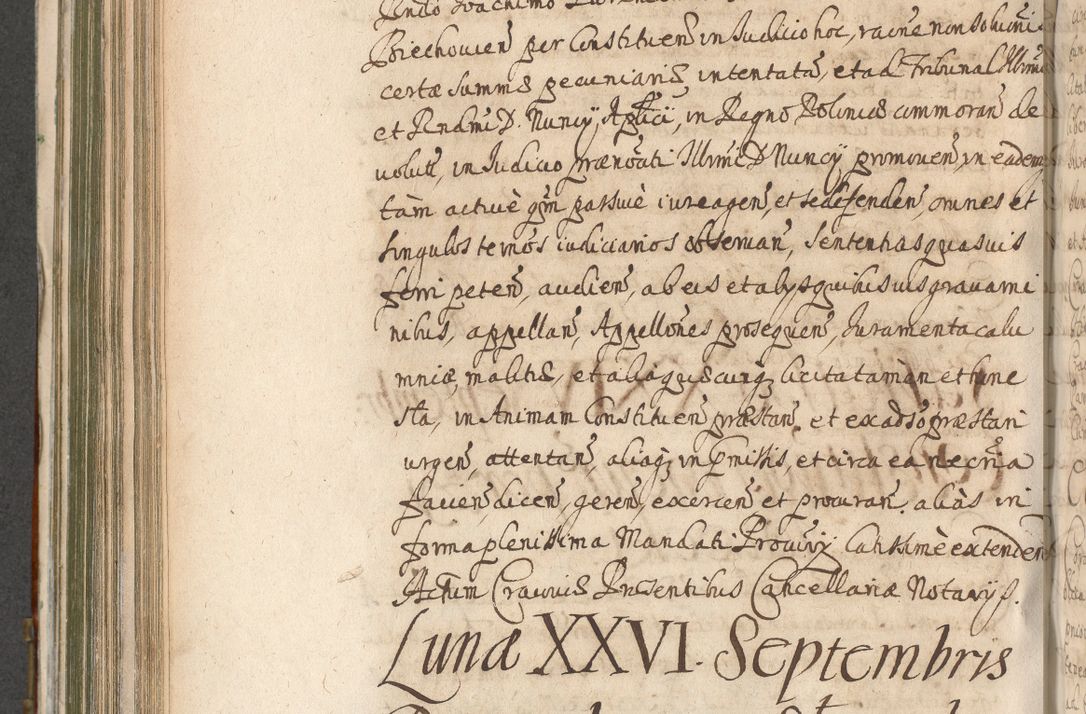 Biechovien per Constituen in Iudicio hoc, racne non solucini
certæ summæ pecuniariæ intentata, et ad Tribunal Illrmi
et Rndmi D. Nuncij Aplici, in Regno Poloniæ commoran de
volut, in Iudicio prænoati Illrmi D Nuncij promoven, in eadem
tàm activè qm passivè iure agen, et se defenden, omnes et
singulos termos iudiciarios observan, sententias quasvis
ferri peten, audien, ab eis et alys quibusvis gravami
nibus, appellan, Appellones prosequen, Iuramenta calu
mniæ, malitiæ, et alia quæcunq licita tamen et hone
sta, in Animam Constituen præstan et ex adso præstari
urgen, attentan, aliaq in præmissis, et circa ea necria
facien, dicen, geren, exercen et procuran, aliàs in
forma plenissima Mandati Provisi latissimè extenden
Actum Cracoviæ Præsentibus Cancellariæ Notarijs.
Lunæ XXVI. Septembris